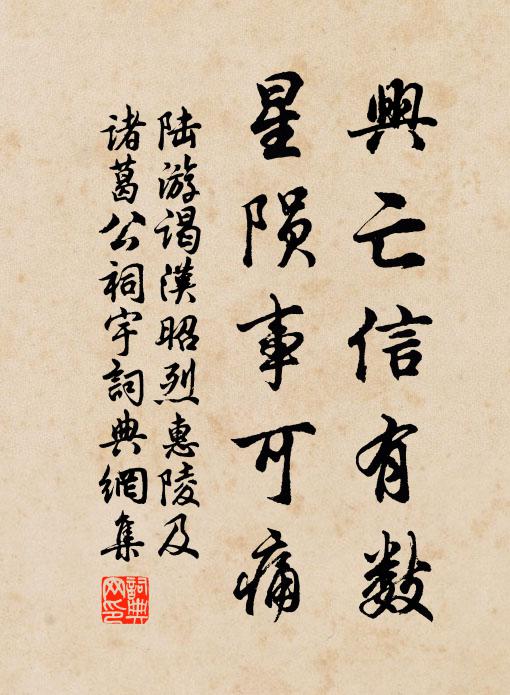 興亡信有数
星陨事可痛
陆游谒漢昭烈惠陵及
诸葛公祠宇詞典網集
詞典網印